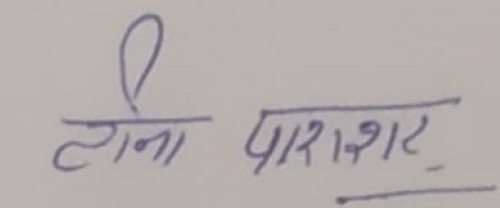 टीना पाराशर